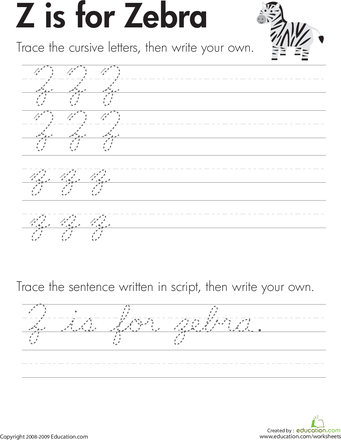 Z is for Zebra
Trace the cursive letters, then write your own.
Z Z Z
Z Z Z
z z z
z z z
Trace the sentence written in script, then write your own.
Z is for zebra.
Created by : education.com
Copyright 2008-2009 Education.com
www.education.com/worksheets